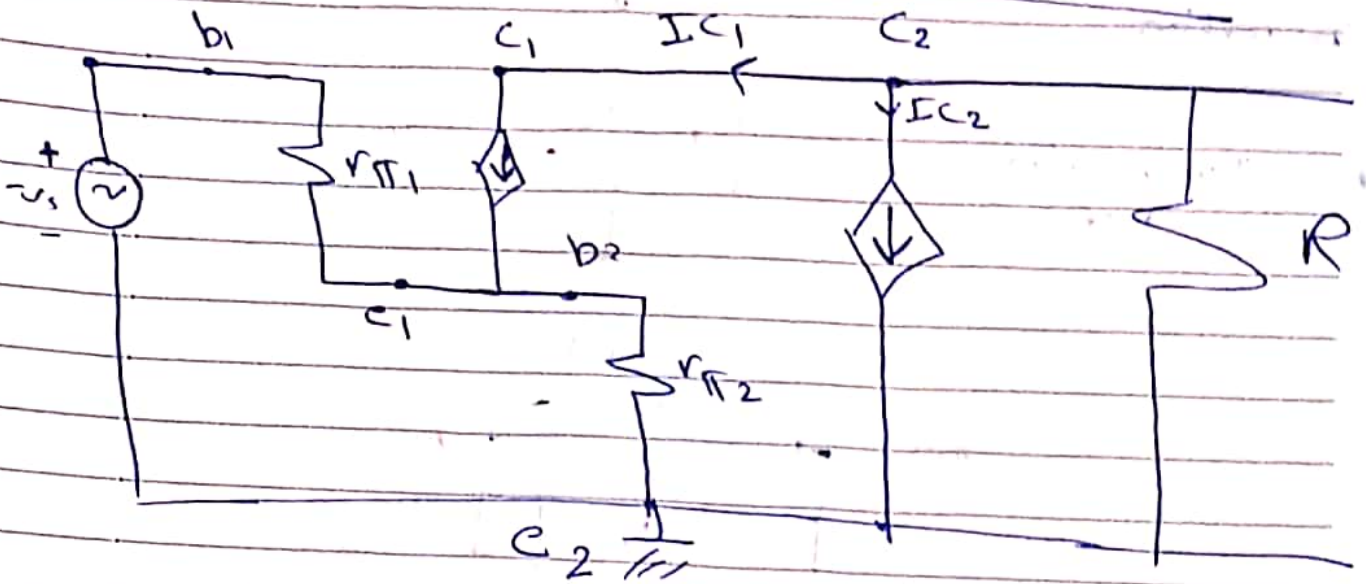 b₁ C₁ IC₁ C₂
IC₂
+
vₛ
-
rπ₁
R
b₂
e₁
rπ₂
e₂